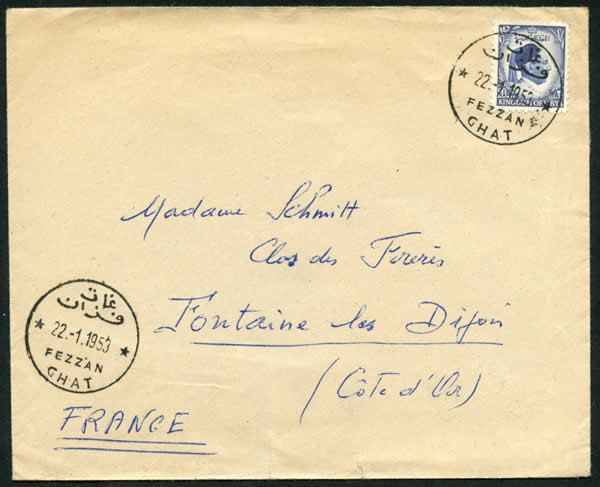 غات
فزان
22.-1.1953
FEZZAN
GHAT
KINGDOM OF LIBYA
Madame Schmitt
Clos des Foreris
Fontaine les Dijon
(Côte d'Or)
FRANCE
غات
فزان
22.-1.1953
FEZZAN
GHAT